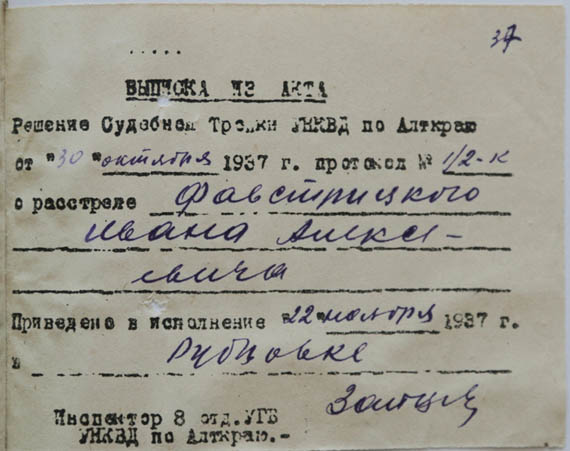 37
.....
ВЫПИСКА ИЗ АКТА
Решение Судебной Тройки УНКВД по Алткраю
от "30" октября 1937 г. протокол № 1/2-к
о расстреле Фавстрицкого
Ивана Алексе-
евича
Приведено в исполнение "22" ноября 1937 г.
в Рубцовке
Инспектор 8 отд. УГБ
УНКВД по Алткраю.-